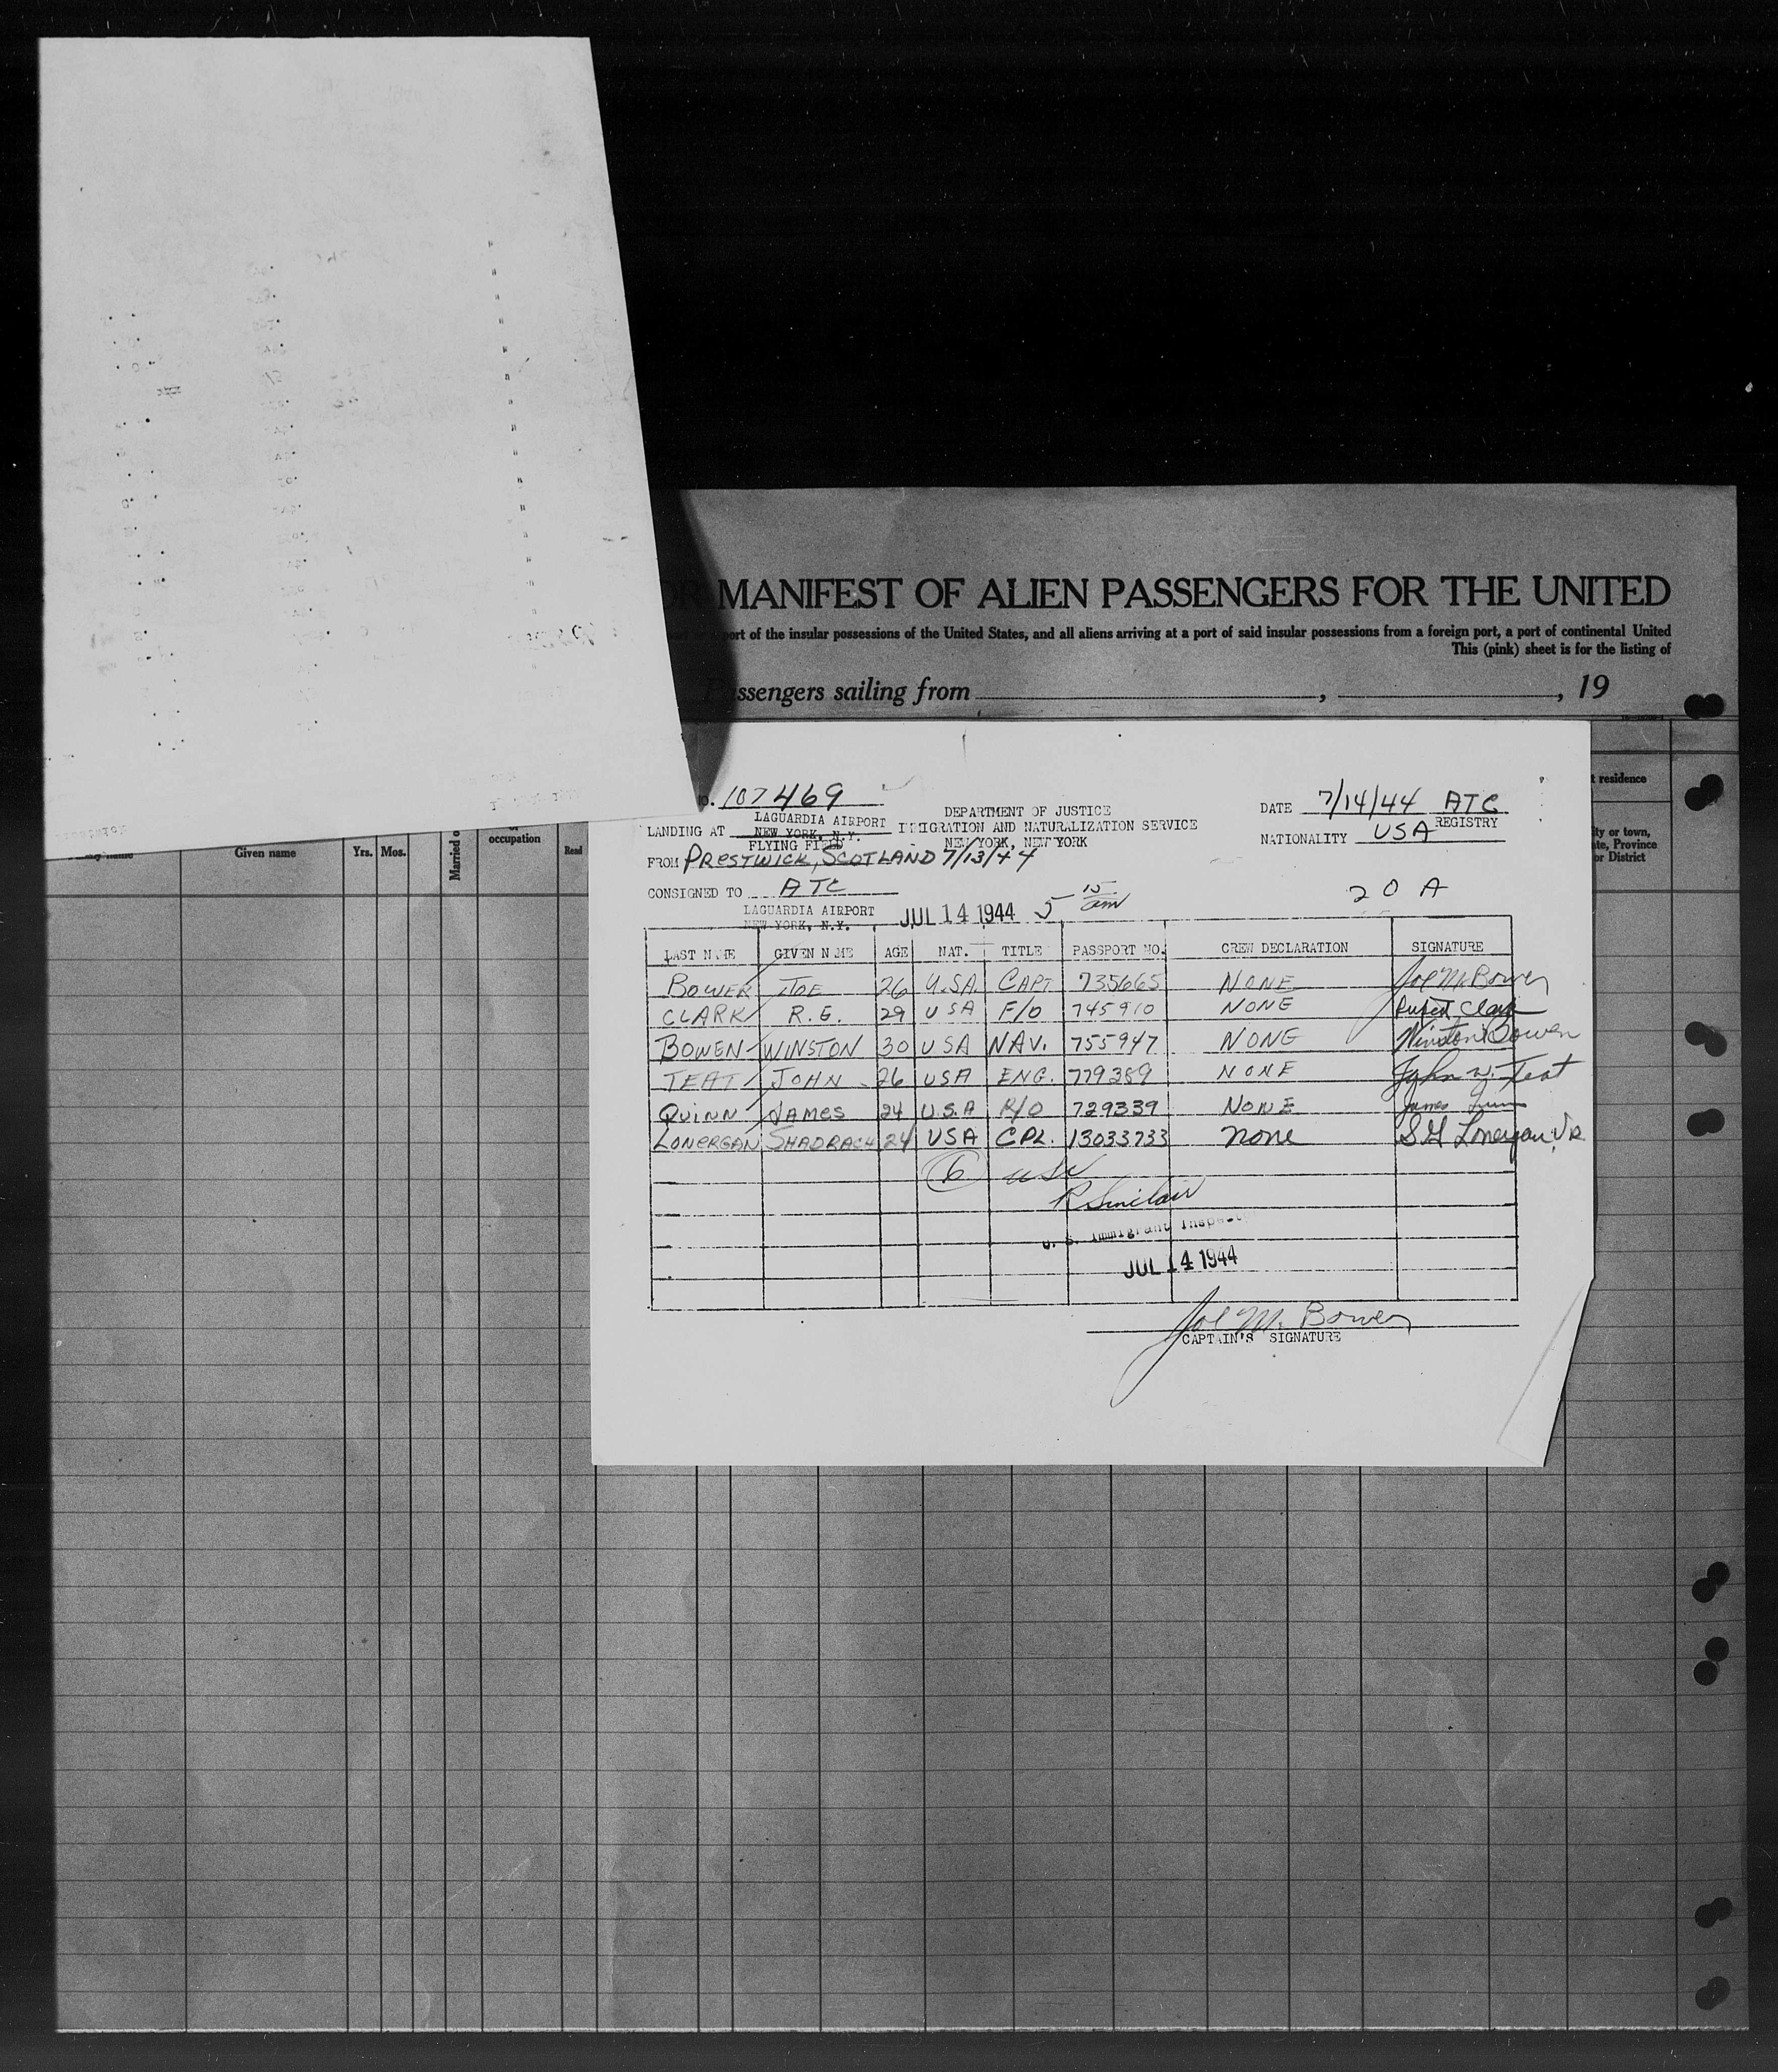 MANIFEST OF ALIEN PASSENGERS FOR THE UNITED
port of the insular possessions of the United States, and all aliens arriving at a port of said insular possessions from a foreign port, a port of continental United
This (pink) sheet is for the listing of
Passengers sailing from , , 19
residence
Given name Yrs. Mos. Married occupation Read
or town, Province or District
107469
DEPARTMENT OF JUSTICE
IMMIGRATION AND NATURALIZATION SERVICE
NEW YORK, NEW YORK
DATE 7/14/44 ATC
REGISTRY
NATIONALITY USA
LANDING AT LAGUARDIA AIRPORT
NEW YORK, N.Y.
FLYING FIELD
FROM PRESTWICK, SCOTLAND 7/13/44
CONSIGNED TO ATC
20 A
LAGUARDIA AIRPORT
NEW YORK, N.Y. JUL 14 1944 5 15 am
LAST NAME GIVEN NAME AGE NAT. TITLE PASSPORT NO. CREW DECLARATION SIGNATURE
BOWER JOE 26 U.S.A. CAPT 735665 NONE Joe M. Bower
CLARK R.E. 29 USA F/O 745910 NONE Clark
BOWEN WINSTON 30 USA NAV. 755947 NONE Winston Bowen
TEAT JOHN 26 USA ENG. 779389 NONE John W. Teat
QUINN JAMES 24 U.S.A R/O 729339 NONE James Quinn
LONERGAN SHADRACH 24 USA CPL. 13033733 none S G Lonergan Jr
6 USC
R Sinclair
U. S. Immigrant Inspector
JUL 14 1944
Joe M. Bower
CAPTAIN'S SIGNATURE